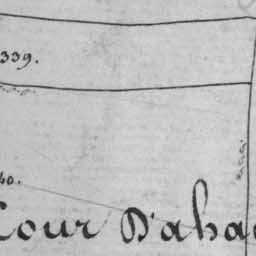 339.
40.
Cour D'aha